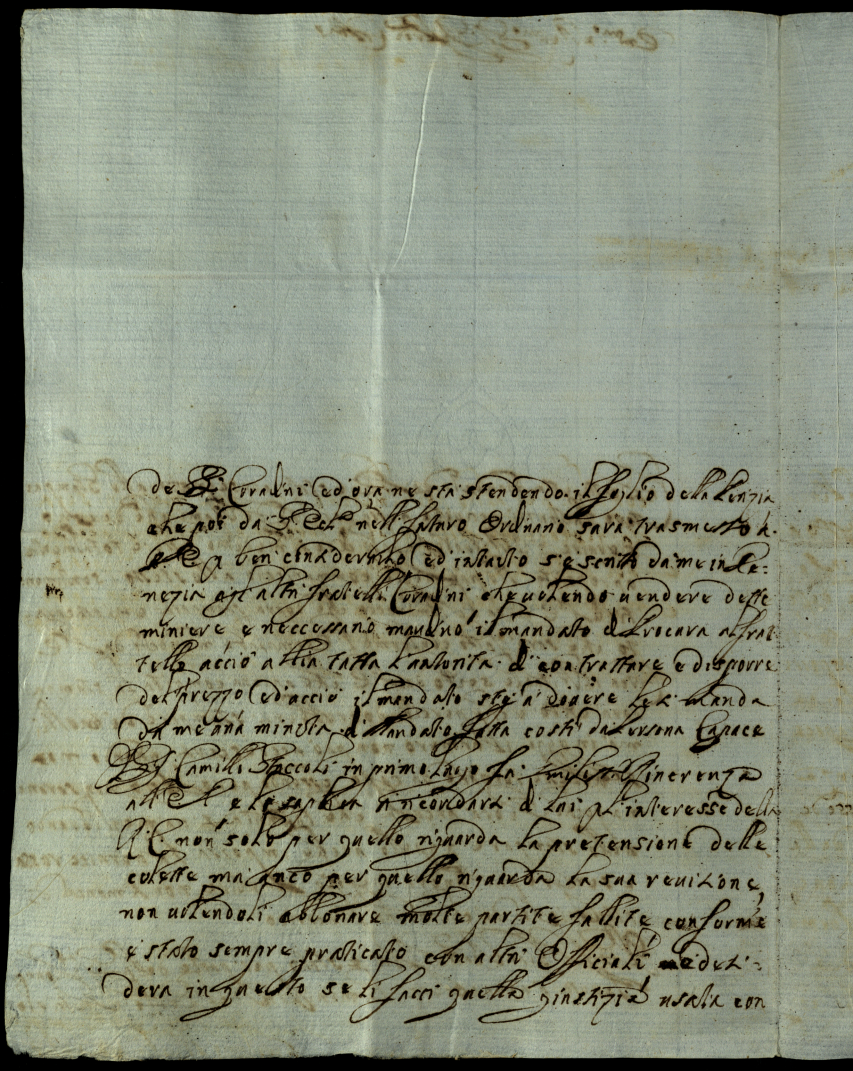 de SS.i Coralni ed ora ne sta stendendo il foglio della
che poi da nell futuro Ordinario sarà trasmesso a
ben considerarlo ed intanto s'è scritto da me in Ve:
nezia agl'altri fratelli Coralni che volendo vendere dette
miniere e neccessario mandino il mandato di Procura al frat
tello acciò abbia tutta l'autorità di contrattare e disporre
del prezzo ed acciò il mandato stij à dovere le si manda
da me una minuta di Mandato fatta costì da Persona Capace
Il S. Camillo Staccoli in primo luogo fà Riverenza
all' e la suplica ricordarsi di lui per l'interesse della
R. C. non solo per quello riguarda la pretensione delle
colette mà anco per quello riguarda la sua revisione,
non volendoli abbonare molte partite fallite conforme
è stato sempre praticato con altri Officiali desi=
dera in questo se li facci quella giustizia usata con